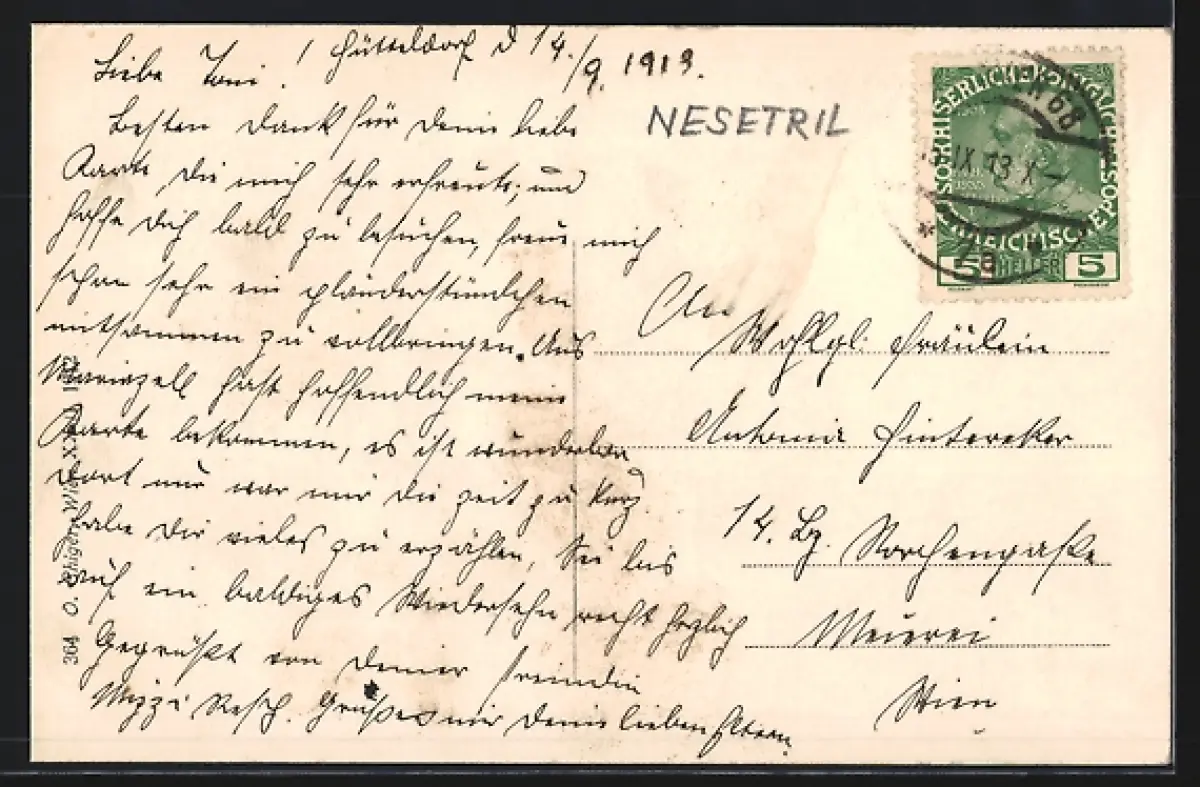 Hütteldorf d 14./9. 1913.
Liebe Toni!
Besten Dank für Deine liebe
Karte die mich sehr erfreute, und
hoffe Dich bald zu besuchen, freue mich
schon sehr ein plauderstündchen
mitsammen zu vollbringen. Aus
Mariazell hast hoffendlich meine
Karte bekommen, es ist wunderbar
dort nur war mir die zeit zu kurz
habe Dir vieles zu erzählen, Sei bis
auf ein baldiges Wiedersehn recht herzlich
Gegrüßt von Deiner freindin
Mizzi Resch. Grüße mir Deine lieben Eltern.
NESETRIL
An
Wohlgb. Fräulein
Antonia Hintereker
14. Bz. Storchengaße
Meierei
Wien
5 HELLER 5
IX 13 X
364